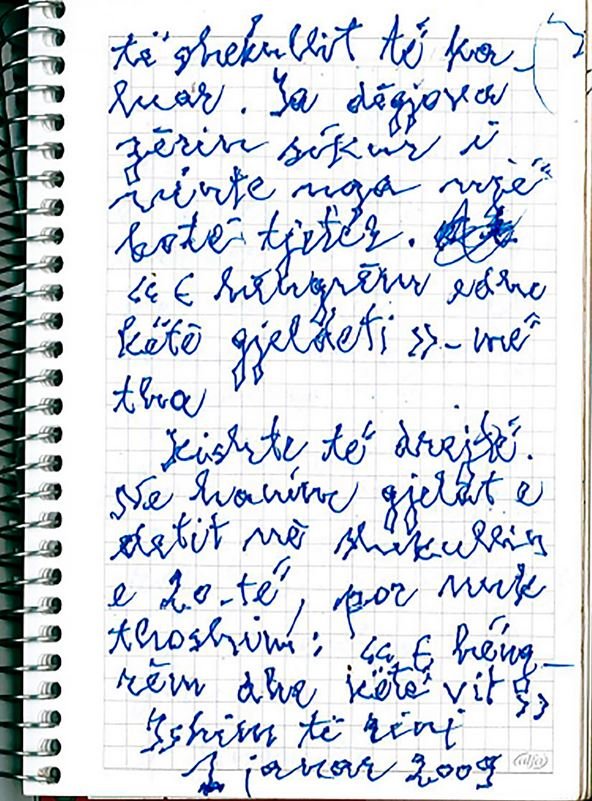 të shekullit të ka-
luar. Ia dëgjova
zërin sikur i
vinte nga një
botë tjetër.
« E hëngrëm edhe
këtë gjeldeti » - më
tha
Kishte të drejtë.
Ne hanim gjelat e
detit në shekullin
e 20-të, por nuk
thoshim: « E hëng-
rëm dhe këtë vit »
Ishim të rinj
1 janar 2009
alfa